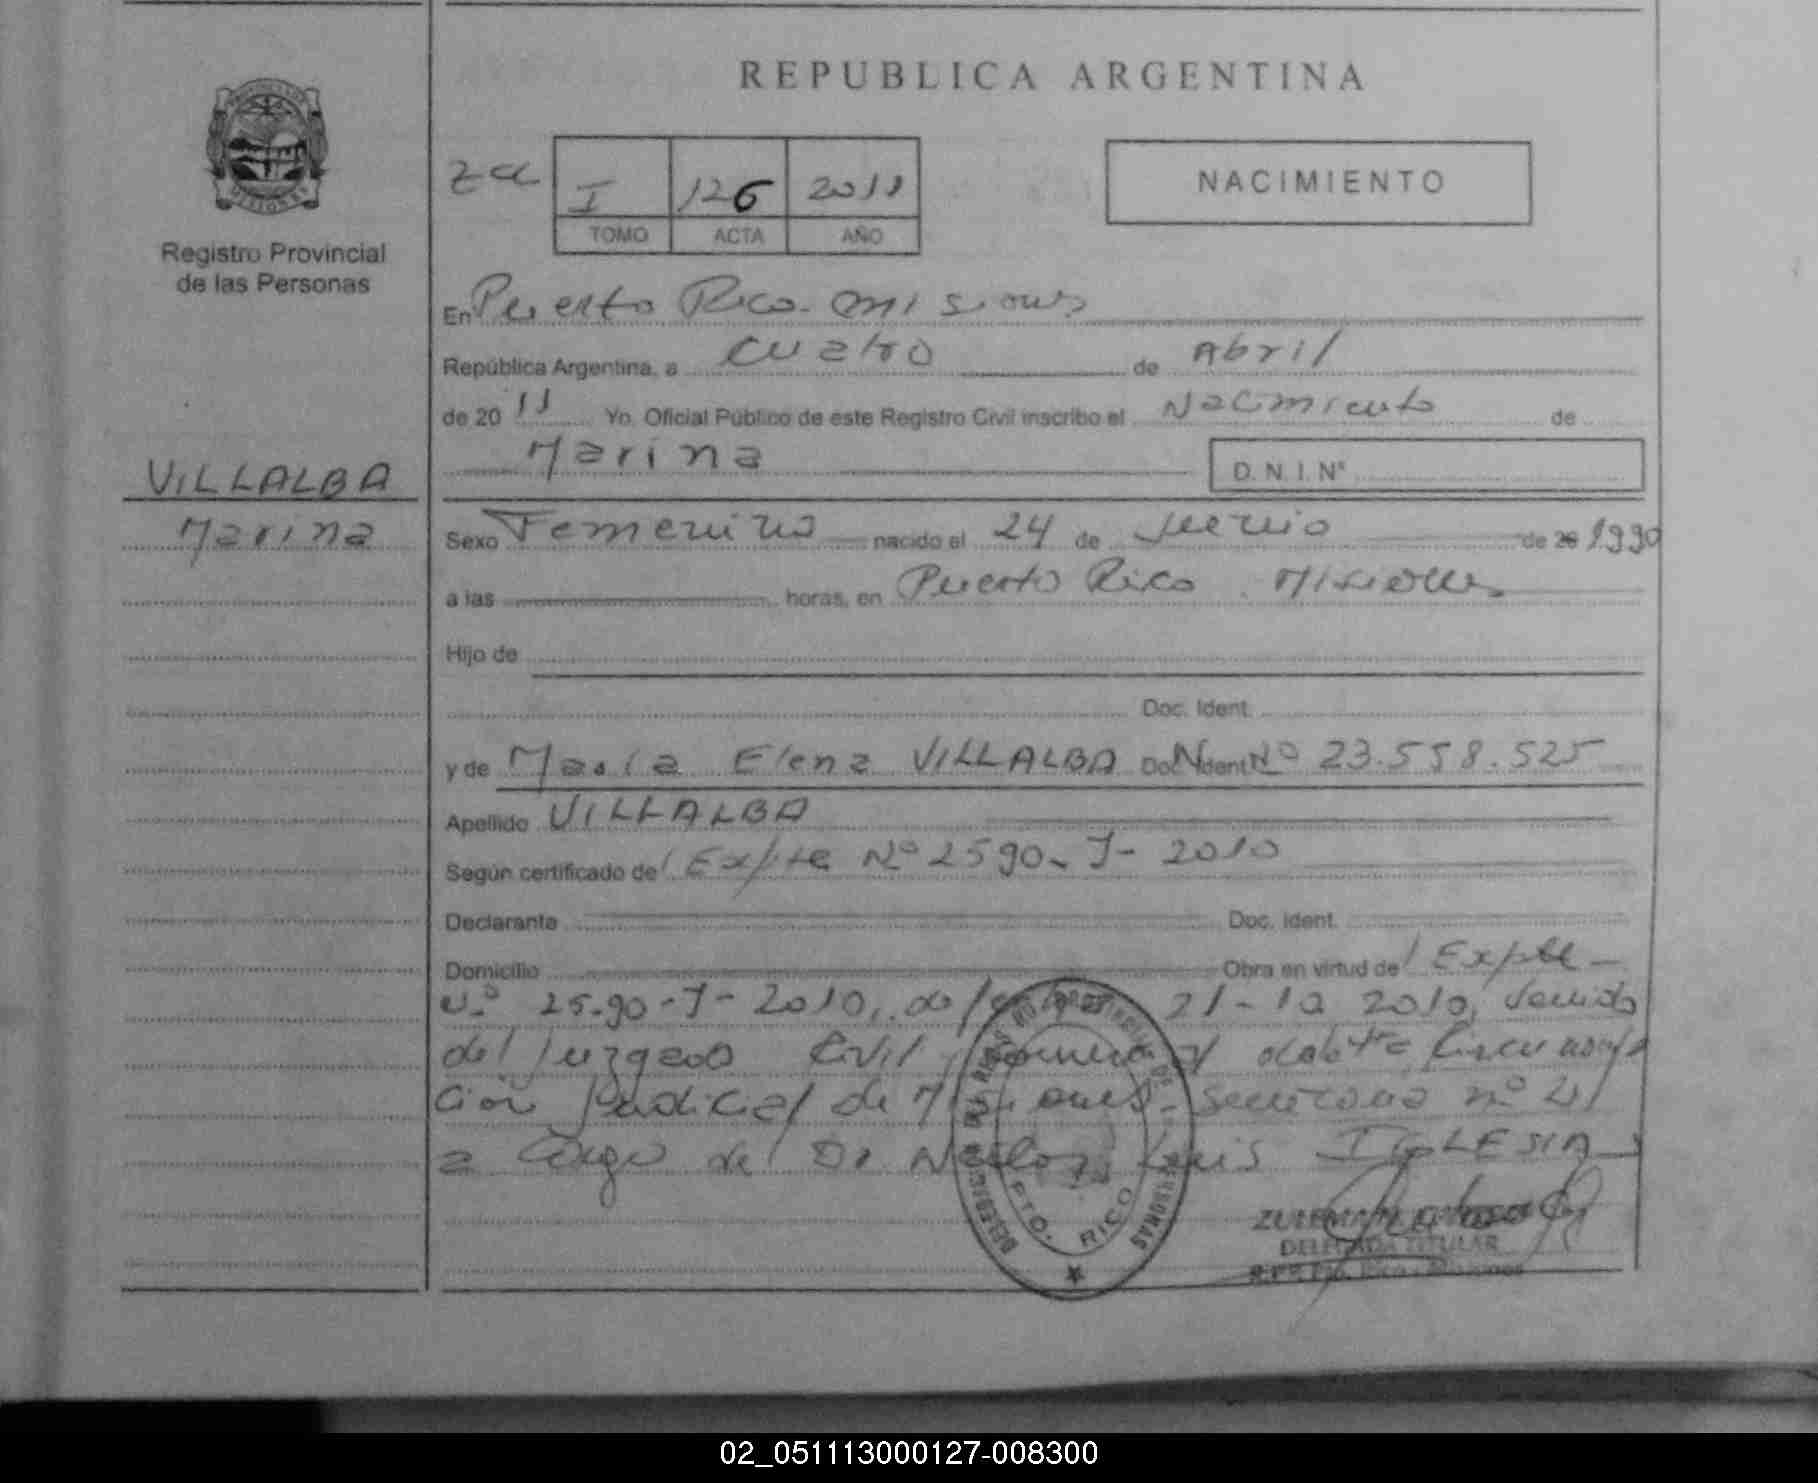 REPUBLICA ARGENTINA
MISIONES
Registro Provincial
de las Personas
I 126 2011
TOMO ACTA AÑO
NACIMIENTO
En Puerto Rico - Misiones
República Argentina, a cuatro de Abril
de 20 11 Yo, Oficial Público de este Registro Civil inscribo el Nacimiento de
Marina D. N. I. Nº
VILLALBA
Marina
Sexo Femenino nacido el 24 de Junio de 20 1990
a las horas, en Puerto Rico Misiones
Hijo de
Doc. Ident.
y de María Elena VILLALBA Doc. Ident. Nº 23.558.525
Apellido VILLALBA
Según certificado de Expte Nº 2590-J-2010
Declarante Doc. Ident.
Domicilio Obra en virtud de Expte -
nº 2590-J-2010, de 21-10 2010,
del Juzgado Civil, de la 4ta Circunscrip
ción Judicial de Misiones,
a cargo del Dr Luis IGLESIAS
PTO. RICO
DELEGADA TITULAR
02_051113000127-008300